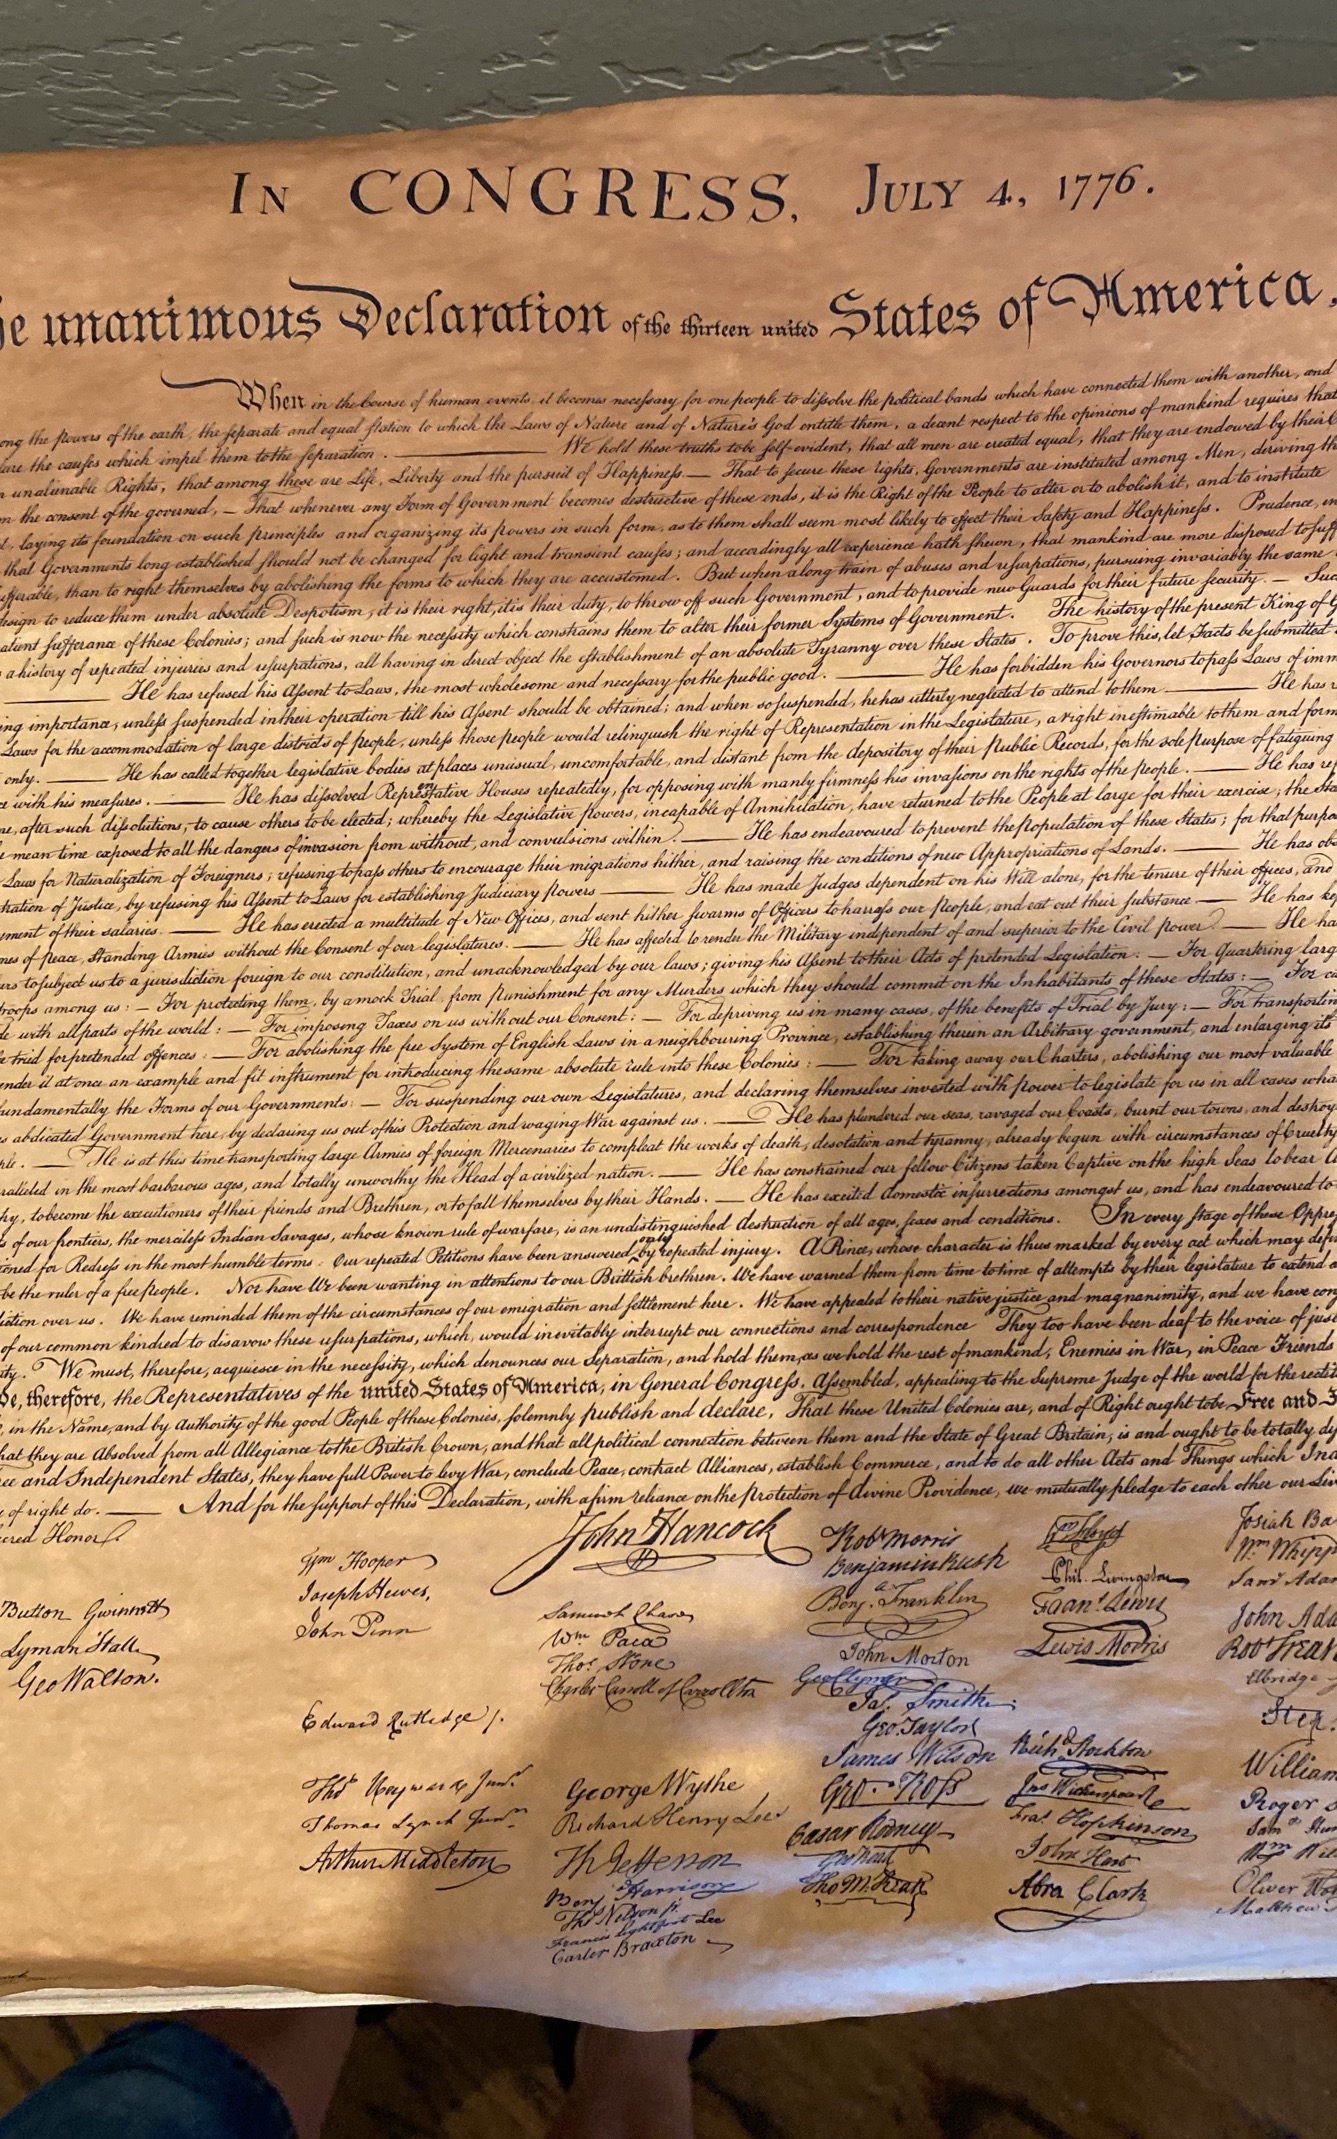 IN CONGRESS, JULY 4, 1776.
he unanimous Declaration of the thirteen united States of America,
When in the Course of human events, it becomes necessary for one people to dissolve the political bands which have connected them with another, and
ong the powers of the earth, the separate and equal station to which the Laws of Nature and of Nature's God entitle them, a decent respect to the opinions of mankind requires that
lare the causes which impel them to the separation. — We hold these truths to be self-evident, that all men are created equal, that they are endowed by their
n unalienable Rights, that among these are Life, Liberty and the pursuit of Happiness. — That to secure these rights, Governments are instituted among Men, deriving th
m the consent of the governed, — That whenever any Form of Government becomes destructive of these ends, it is the Right of the People to alter or to abolish it, and to institute
t, laying its foundation on such principles and organizing its powers in such form, as to them shall seem most likely to effect their Safety and Happiness. Prudence, in
that Governments long established should not be changed for light and transient causes; and accordingly all experience hath shewn, that mankind are more disposed to suff
ufferable, than to right themselves by abolishing the forms to which they are accustomed. But when a long train of abuses and usurpations, pursuing invariably the same
design to reduce them under absolute Despotism, it is their right, it is their duty, to throw off such Government, and to provide new Guards for their future security. — Suc
atient sufferance of these Colonies; and such is now the necessity which constrains them to alter their former Systems of Government. The history of the present King of G
a history of repeated injuries and usurpations, all having in direct object the establishment of an absolute Tyranny over these States. To prove this, let Facts be submitted
He has refused his Assent to Laws, the most wholesome and necessary for the public good. — He has forbidden his Governors to pass Laws of imm
ing importance, unless suspended in their operation till his Assent should be obtained; and when so suspended, he has utterly neglected to attend to them — He has r
Laws for the accommodation of large districts of people, unless those people would relinquish the right of Representation in the Legislature, a right inestimable to them and form
only. — He has called together legislative bodies at places unusual, uncomfortable, and distant from the depository of their Public Records, for the sole purpose of fatiguing
ce with his measures. — He has dissolved Representative Houses repeatedly, for opposing with manly firmness his invasions on the rights of the people. — He has re
me, after such dissolutions, to cause others to be elected; whereby the Legislative powers, incapable of Annihilation, have returned to the People at large for their exercise; the Sta
e mean time exposed to all the dangers of invasion from without, and convulsions within. — He has endeavoured to prevent the population of these States; for that purpo
Laws for Naturalization of Foreigners; refusing to pass others to encourage their migrations hither, and raising the conditions of new Appropriations of Lands. — He has ob
tration of Justice, by refusing his Assent to Laws for establishing Judiciary powers — He has made Judges dependent on his Will alone, for the tenure of their offices, and
yment of their salaries. — He has erected a multitude of New Offices, and sent hither swarms of Officers to harrass our people, and eat out their substance. — He has ke
mes of peace, Standing Armies without the Consent of our legislatures. — He has affected to render the Military independent of and superior to the Civil power. — He ha
ers to subject us to a jurisdiction foreign to our constitution, and unacknowledged by our laws; giving his Assent to their Acts of pretended Legislation: — For Quartering larg
troops among us: — For protecting them, by a mock Trial, from punishment for any Murders which they should commit on the Inhabitants of these States: — For cu
de with all parts of the world: — For imposing Taxes on us without our Consent: — For depriving us in many cases, of the benefits of Trial by Jury: — For transportin
e tried for pretended offences: — For abolishing the free System of English Laws in a neighbouring Province, establishing therein an Arbitrary government, and enlarging its
ender it at once an example and fit instrument for introducing the same absolute rule into these Colonies: — For taking away our Charters, abolishing our most valuable
fundamentally the Forms of our Governments: — For suspending our own Legislatures, and declaring themselves invested with power to legislate for us in all cases wha
s abdicated Government here, by declaring us out of his Protection and waging War against us. — He has plundered our seas, ravaged our Coasts, burnt our towns, and destroy
ple. — He is at this time transporting large Armies of foreign Mercenaries to compleat the works of death, desolation and tyranny, already begun with circumstances of Cruelty
ralleled in the most barbarous ages, and totally unworthy the Head of a civilized nation. — He has constrained our fellow Citizens taken Captive on the high Seas to bear A
try, to become the executioners of their friends and Brethren, or to fall themselves by their Hands. — He has excited domestic insurrections amongst us, and has endeavoured to
s of our frontiers, the merciless Indian Savages, whose known rule of warfare, is an undistinguished destruction of all ages, sexes and conditions. In every stage of these Oppre
ioned for Redress in the most humble terms: Our repeated Petitions have been answered only by repeated injury. A Prince, whose character is thus marked by every act which may defi
be the ruler of a free people. Nor have We been wanting in attentions to our Brittish brethren. We have warned them from time to time of attempts by their legislature to extend a
iction over us. We have reminded them of the circumstances of our emigration and settlement here. We have appealed to their native justice and magnanimity, and we have con
of our common kindred to disavow these usurpations, which, would inevitably interrupt our connections and correspondence They too have been deaf to the voice of jus
ity. We must, therefore, acquiesce in the necessity, which denounces our Separation, and hold them, as we hold the rest of mankind, Enemies in War, in Peace Friends
We, therefore, the Representatives of the united States of America, in General Congress, Assembled, appealing to the Supreme Judge of the world for the rectit
, in the Name, and by Authority of the good People of these Colonies, solemnly publish and declare, That these United Colonies are, and of Right ought to be Free and I
hat they are Absolved from all Allegiance to the British Crown, and that all political connection between them and the State of Great Britain, is and ought to be totally di
ee and Independent States, they have full Power to levy War, conclude Peace, contract Alliances, establish Commerce, and to do all other Acts and Things which Ind
y of right do. — And for the support of this Declaration, with a firm reliance on the protection of divine Providence, we mutually pledge to each other our Liv
cred Honor.
Button Gwinnett
Lyman Hall
Geo Walton.
Wm Hooper
Joseph Hewes,
John Penn
Edward Rutledge /.
Thos Heyward Junr.
Thomas Lynch Junr.
Arthur Middleton
John Hancock
Samuel Chase
Wm. Paca
Thos. Stone
Charles Carroll of Carrollton
George Wythe
Richard Henry Lee
Th Jefferson
Benj Harrison
Thos Nelson jr.
Francis Lightfoot Lee
Carter Braxton
Robt Morris
Benjamin Rush
Benj. Franklin
John Morton
Geo Clymer
Jas. Smith.
Geo. Taylor
James Wilson
Geo. Ross
Caesar Rodney
Geo Read
Tho M:Kean
Wm Floyd
Phil. Livingston
Frans. Lewis
Lewis Morris
Richd. Stockton
Jno Witherspoon
Fras. Hopkinson
John Hart
Abra Clark
Josiah Ba
Wm Whipp
Saml Adam
John Ada
Robt Trea
Elbridge
Step.
William
Roger
Saml Hun
Wm Wil
Oliver Wo
Matthew